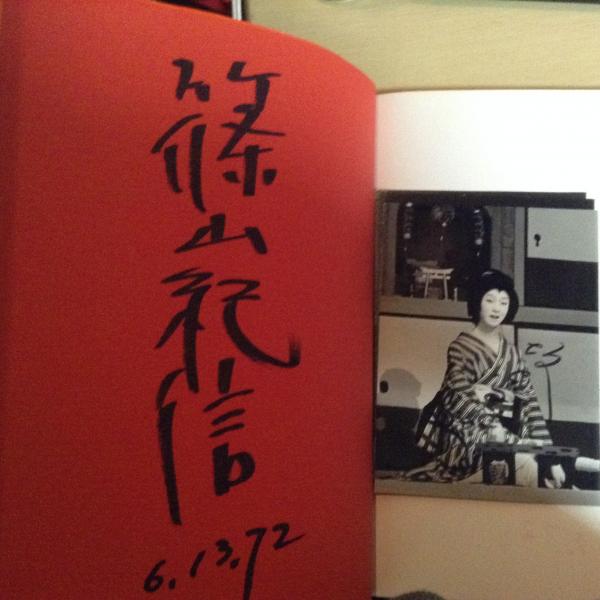 篠山紀信
6.13.72